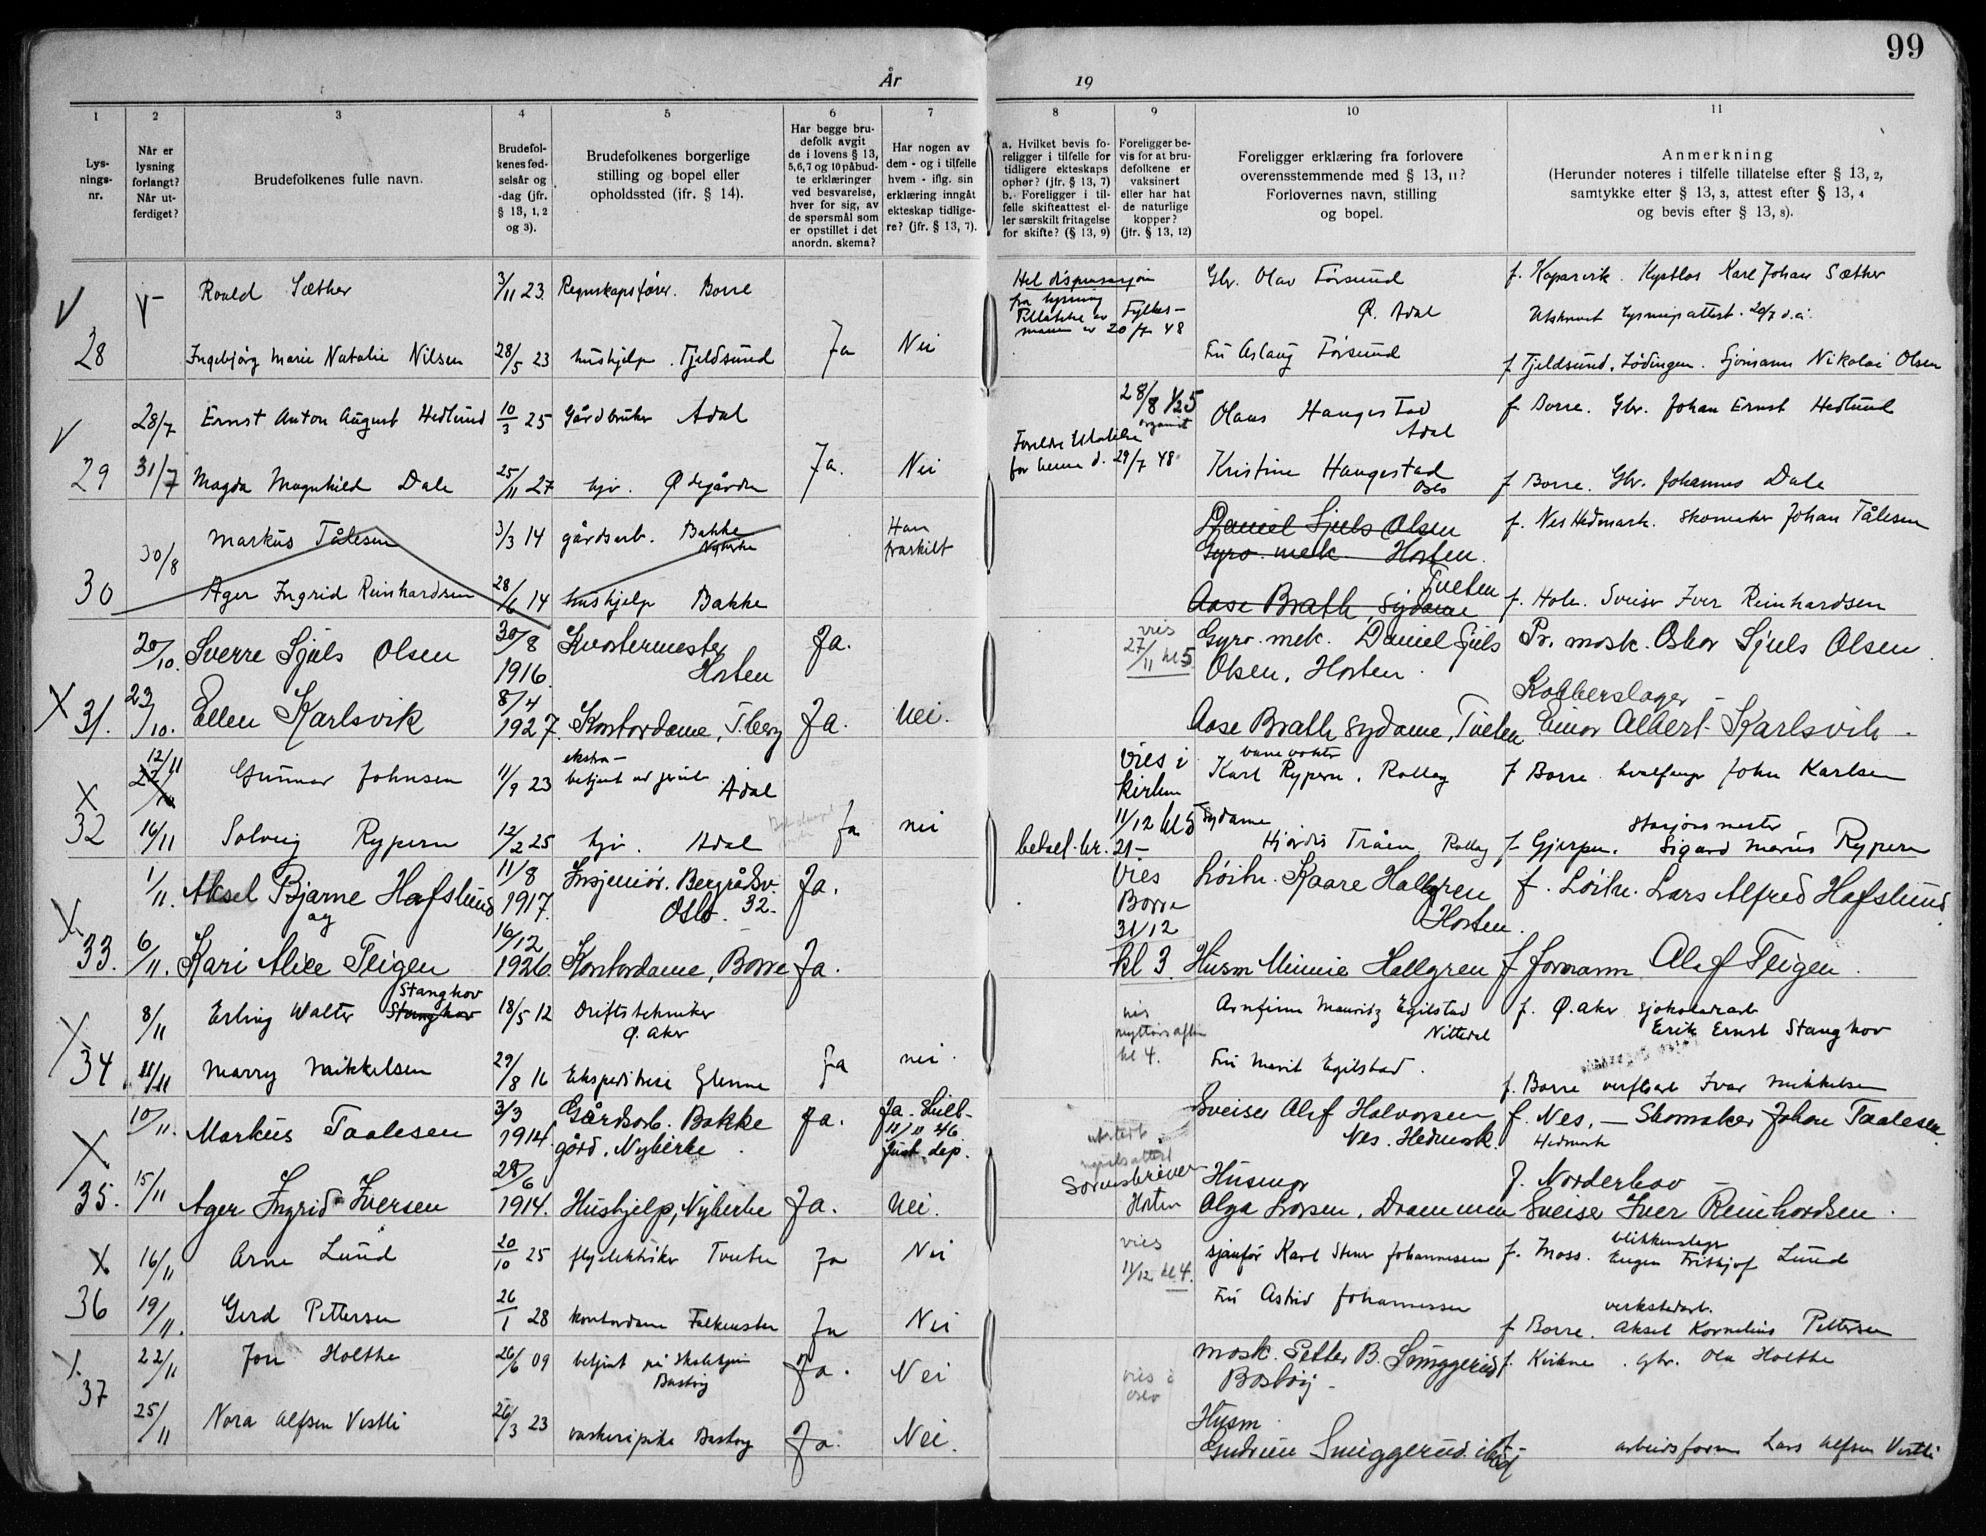 99
År
19
1
2
3
4
5
6
7
8
9
10
11
Lys-
nings-
nr.
Når er
lysning
forlangt?
Når ut-
ferdiget?
Brudefolkenes fulle navn.
Brudefol-
kenes fød-
selsår og
-dag (jfr.
§ 13, 1, 2
og 3).
Brudefolkenes borgerlige
stilling og bopel eller
opholdssted (ifr. § 14).
Har begge bru-
defolk avgit
de i lovens § 13,
5, 6, 7 og 10 påbud-
te erklæringer
ved besvarelse,
hver for sig, av
de spørsmål som
er opstillet i det
anordn. skema?
Har nogen av
dem - og i tilfelle
hvem - iflg. sin
erklæring inngått
ekteskap tidlige-
re? (jfr. § 13, 7).
a. Hvilket bevis fo-
religger i tilfelle for
tidligere ekteskaps
ophør? (jfr. § 13, 7)
b. Foreligger i til-
felle skifteattest el-
ler særskilt fritagelse
for skifte? (§ 13, 9)
Foreligger be-
vis for at bru-
defolkene er
vaksinert
eller har hat
de naturlige
kopper?
(jfr. § 13, 12)
Foreligger erklæring fra forlovere
overensstemmende med § 13, 11?
Forlovernes navn, stilling
og bopel.
Anmerkning
(Herunder noteres i tilfelle tillatelse efter § 13, 2,
samtykke efter § 13, 3, attest efter § 13, 4
og bevis efter § 13, 8).
V
Roald Sæther 3/11 23 Regnskapsfører. Borre
Hel dispensasjon
fra lysning
Tillatelse av Fylkes-
mann av 20/7 48
Gbr. Olav Førsund
Ø. Adal
f. Koparvik. Kystlos Karl Johan Sæther
Utskrevet lysningsattest. 20/7 d.å.
28 Ingebjørg Marie Natalie Nilsen 28/5 23 hushjelp. Tjeldsund Ja Nei
Fru Aslaug Førsund
f Tjeldsund, Lødingen. Sjømann Nikolai Olsen
V 28/7 Ernst Anton August Hedlund 10/3 25 Gårdbruker Adal
28/8 1/2 5
organist
Olaus Hangestad
Adal
f. Borre. Gbr. Johan Ernst Hedlund
29 31/7 Magda Magnhild Dale 25/11 27 hjv. Ødegården Ja. Nei
for henne d. 29/7 48
Kristine Hangestad
Oslo
f Borre. Gbr. Johannes Dale
30/8 Markus Tålesen 3/3 14 gårdsarb. Bakke
Nykirke
Han
fraskilt
Daniel Sjuls Olsen
Gyro. mek. Horten.
f. Nes Hedmark. Skomaker Johan Tålesen
30 Ager Ingrid Reinhardsen 28/6 14 hushjelp Bakke
Aase Brath, Sydame Tveten
f. Hole. Sveiser Iver Reinhardsen
20/10. Sverre Sjuls Olsen 30/8 1916. Kvartermester
Horten Ja.
vies
27/11 kl 5
Gyro. mek. Daniel Sjuls
Olsen, Horten.
Pr. mask. Oskar Sjuls Olsen.
X 31. 23/10. Ellen Karlsvik 8/4 1927. Kontordame, T.berg Ja. Nei.
Aase Brath Sydame, Tveten
Kobberslager
Einar Albert Karlsvik.
X 12/11 Gunnar Johnsen 11/9 23 ekstra-
betjent ved jernb. Adal
vies i
kirken
11/12 kl 5
banevokter
Karl Rypern, Rollag
f Borre. hvalfanger John Karlsen
32 16/11 Solveig Rypern 12/2 25 hjv. Adal Ja nei
betal. kr. 21-
Sydame
Hjørdis Tråen, Rollag
f. Gjerpen. Stasjonsmester
Sigurd Marius Rypern
1/11. Aksel Bjarne Hafslund
og
11/8 1917. Insjeniør. Bergrådsv.
Oslo. 32. Ja.
Vies
Borre
31/12
kl 3
Løitn. Kaare Hallgren
Horten.
f. Løitn. Lars Alfred Hafslund
X 33. 6/11. Kari Alice Teigen 16/12 1926. Kontordame, Borre Ja.
Husm Minnie Hallgren
f formann Alef Teigen.
8/11 Erling Walter Stanghov 18/5 12 Driftstekniker
Ø. Aker
vies
nyttårsaften
kl 4.
Arnfinn Mauritz Egilstad
Nittedal
f. Ø. Aker sjokoladearb
Erik Ernst Stanghov
34 11/11 Marry Mikkelsen 29/8 16 Ekspeditrise Glenne Ja nei.
Fru Marit Egilstad.
f. Borre verftsarb Ivar Mikkelsen
10/11. Markus Taalesen 3/3 1914. Gårdsarb. Bakke
gård. Nykirke. Ja.
Ja. Skilt-
11/11 46
Just. dep.
Sveiser Alef Halvorsen
Nes. Hedmark.
f. Nes, - Skomaker Johan Taalesen.
Hedmark
X 35. 15/11 Ager Ingrid Iversen 28/6 1914. Hushjelp, Nykirke Ja. Nei.
utstedt
Sorenskriver
Horten
Husmor
Olga Larsen, Drammen
f. Norderhov -
Sveiser Iver Reinhardsen.
X 16/11 Arne Lund 20/10 25 flyelektriker Tveten Ja Nei
vies
11/12 kl 4.
sjåufør Karl Sten Johannesen
f. Moss. blikkenslager
Eugen Frithjof Lund
36 19/11. Gerd Pettersen 26/1 28 kontordame Falkensten Ja Nei
Fru Astrid Johannessen
f Borre. verkstedarb.
Aksel Kornelius Pettersen
X. 37 22/11 Jon Holthe 26/6 09 betjent på Skolehjem
Bastøy Ja. Nei
vies i
Oslo
Mask. Petter B. Smuggerud
Bastøy -
f. Kvikne. gbr. Ola Holthe
25/11 Nora Alfsen Vestli 26/3 23 vaskeripike Bastøy Ja. Nei.
Husm.
Gudrun Smuggerud. ibid
arbeidsform Lars Alfsen Vestli